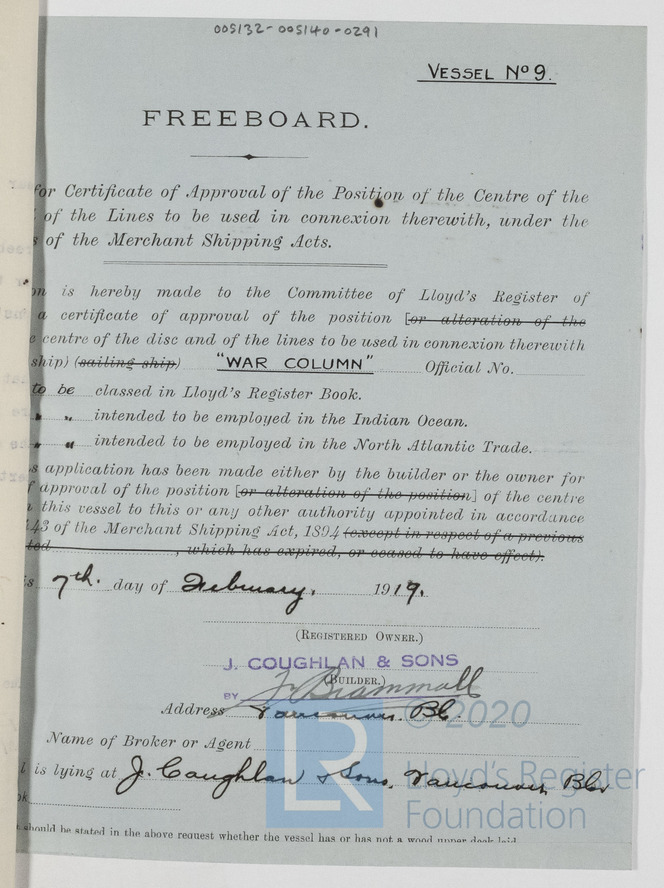 005132-005140-0291
VESSEL Nº 9.
FREEBOARD.
for Certificate of Approval of the Position of the Centre of the
of the Lines to be used in connexion therewith, under the
s of the Merchant Shipping Acts.
on is hereby made to the Committee of Lloyd's Register of
a certificate of approval of the position [or alteration of the
e centre of the disc and of the lines to be used in connexion therewith
ship) (sailing ship) "WAR COLUMN" Official No.
to be classed in Lloyd's Register Book.
" " intended to be employed in the Indian Ocean.
" " intended to be employed in the North Atlantic Trade.
s application has been made either by the builder or the owner for
f approval of the position [or alteration of the position] of the centre
n this vessel to this or any other authority appointed in accordance
443 of the Merchant Shipping Act, 1894 (except in respect of a previous
ted , which has expired, or ceased to have effect).
is 7th. day of February. 1919.
(REGISTERED OWNER.)
J. COUGHLAN & SONS
(BUILDER.)
BY J Brammall
Address Vancouver. BC.
© 2020
Name of Broker or Agent
l is lying at J. Coughlan & Sons, Vancouver, BC.
ok
LR Lloyd's Register
Foundation
should be stated in the above request whether the vessel has or has not a wood upper deck laid.